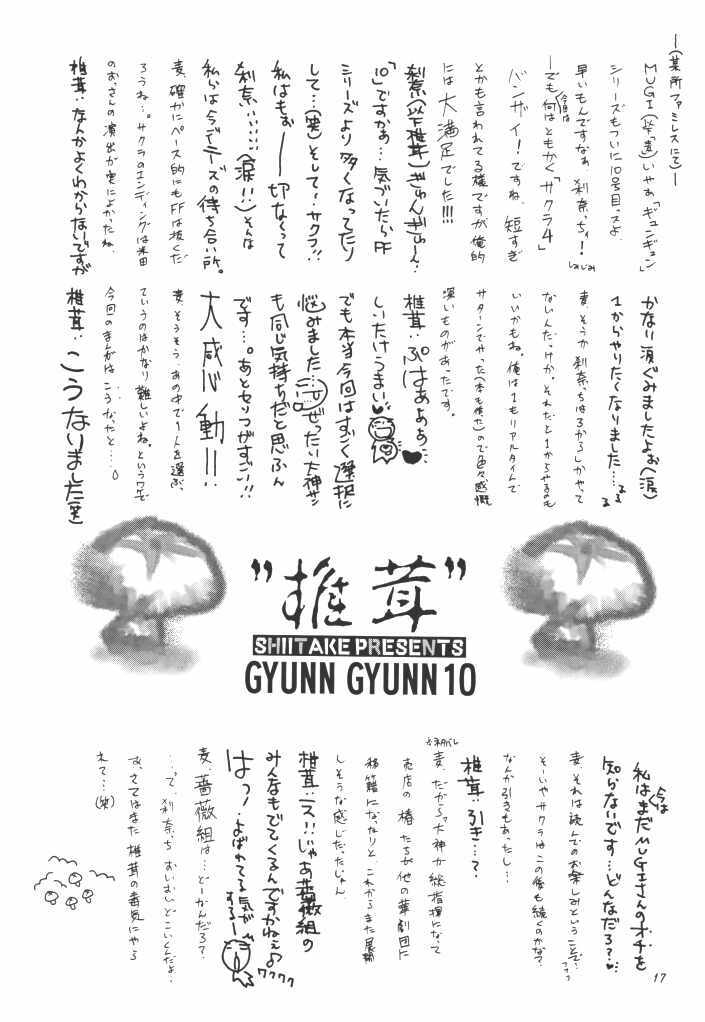 ―(某所ファミレスにて)―
MUGI(以下“麦”)いやぁ「ギュンギュン」
シリーズもついに10号目っスよ
早いもんですなぁ 刹奈っち!しみじみ
―でも今日は何はともかく「サクラ4」
バンザイ!ですね、短すぎ
とかも言われてる様ですが俺的
には大満足でした!!!
刹奈(以下椎茸)ぎゅんぎゅーん…
「10」ですかぁ…気づいたらFF
シリーズより多くなってたり
して…(笑)そして!サクラ!!
私はもぉ――一切なくって
刹奈いいい…(涙!!)そんは
私らは今でデーズの待ち合い所。
麦、確かにペース的にもFFは抜くだ
ろうね…。サクラのエンディングは米田
のおっさんの演出が実によかったね、
椎茸:なんかよくわからないですが
かなり涙ぐみましたよぉ(涙)
1からやりたくなりました…
麦 そうか刹奈っちは3からしかやって
ないんだっけか。それだと1からやるのも
いいかもね。俺は1もリアルタイムで
サターンでやった(本も作った)ので色々感慨
深いものがあったです。
椎茸:ぷはぁぁぁ…
しいたけうまい♥
でも本当今回はすごく選択に
悩みました…ぜったい大神サン
も同じ気持ちだと思ふん
です…。あとセリフがすごい!!
大感動!!
麦 そうそう、あの中で1人を選ぶ、
ていうのはかなり難しいよね。というワケで
今回のまんがはこうなったと…
椎茸:こうなりました(笑)
”椎茸”
SHIITAKE PRESENTS
GYUNN GYUNN 10
私は今はまだMUGIさんのオチを
知らないです…どんなだろ?…♥
麦 それは読んでのお楽しみということで…フフフ
そーいやサクラはこの後も続くのかな?
なんか引きもあったし…
椎茸:引き…?
※ネタバレ
麦、だからっ大神が総指揮になって
売店の椿ちゃんたちが他の華劇団に
移籍になったりと これからまた展開
しそうな感じだったじゃん
椎茸:ス!!じゃあ薔薇組の
みんなもでてくるんですかねぇ♪ワクワク
はっ!よばれてる気がするー
麦:薔薇組は…どーかんだろ?
…って、刹奈っち おいおいどこいくんだよ…
さ、さてはまた 椎茸の毒気にやら
れて…(笑)
17